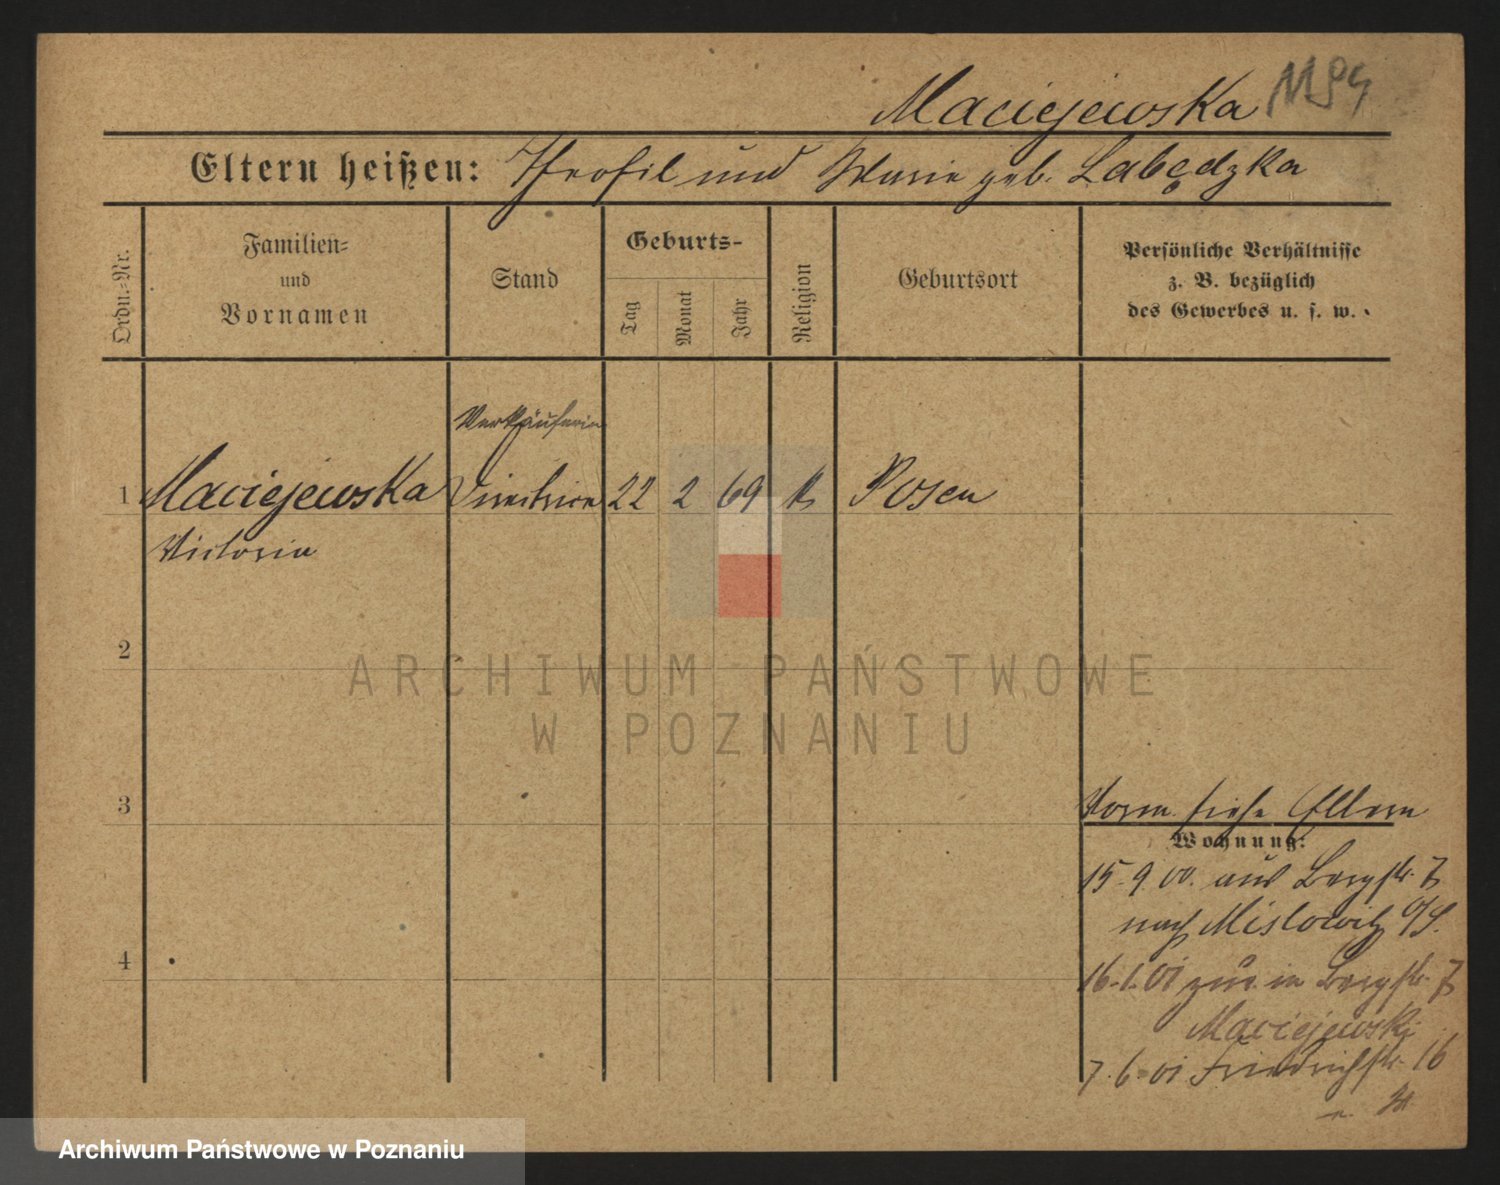 Maciejewska 1194
Eltern heißen: Theofil und Marie geb. Labędzka
Ordn.-Nr.
Familien-
und
Vornamen
Stand
Geburts-
Tag
Monat
Jahr
Religion
Geburtsort
Persönliche Verhältnisse
z. B. bezüglich
des Gewerbes u. s. w.
Verkäuferin
1 Maciejewska Directrice 22 2 69 k Posen
Victoria
2
ARCHIWUM PAŃSTWOWE
W POZNANIU
3
Vorm. siehe Eltern
Wohnung:
15.9.00. aus Bergstr. 7
nach Mislowitz O/S.
4
16.1.01 zur. in Bergstr. 7
Maciejewski
7.6.01 Friedrichstr. 16
Archiwum Państwowe w Poznaniu